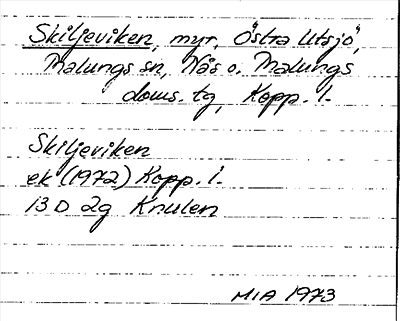 Skiljeviken, myr, Östra Utsjö,
Malungs sn, Nås o. Malungs
doms. tg, Kopp. l.
Skiljeviken
ek (1972) Kopp. l.
13 D 2g Knulen
MIA 1973